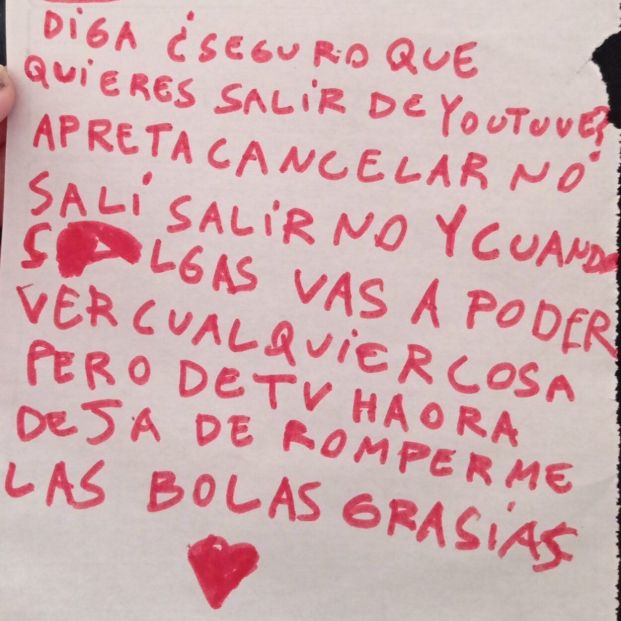 DIGA ¿SEGURO QUE
QUIERES SALIR DE YOUTUVE?
APRETA CANCELAR NO
SALÍ SALIR NO Y CUANDO
SALGAS VAS A PODER
VER CUALQUIER COSA
PERO DE TV HAORA
DEJA DE ROMPERME
LAS BOLAS GRASIAS